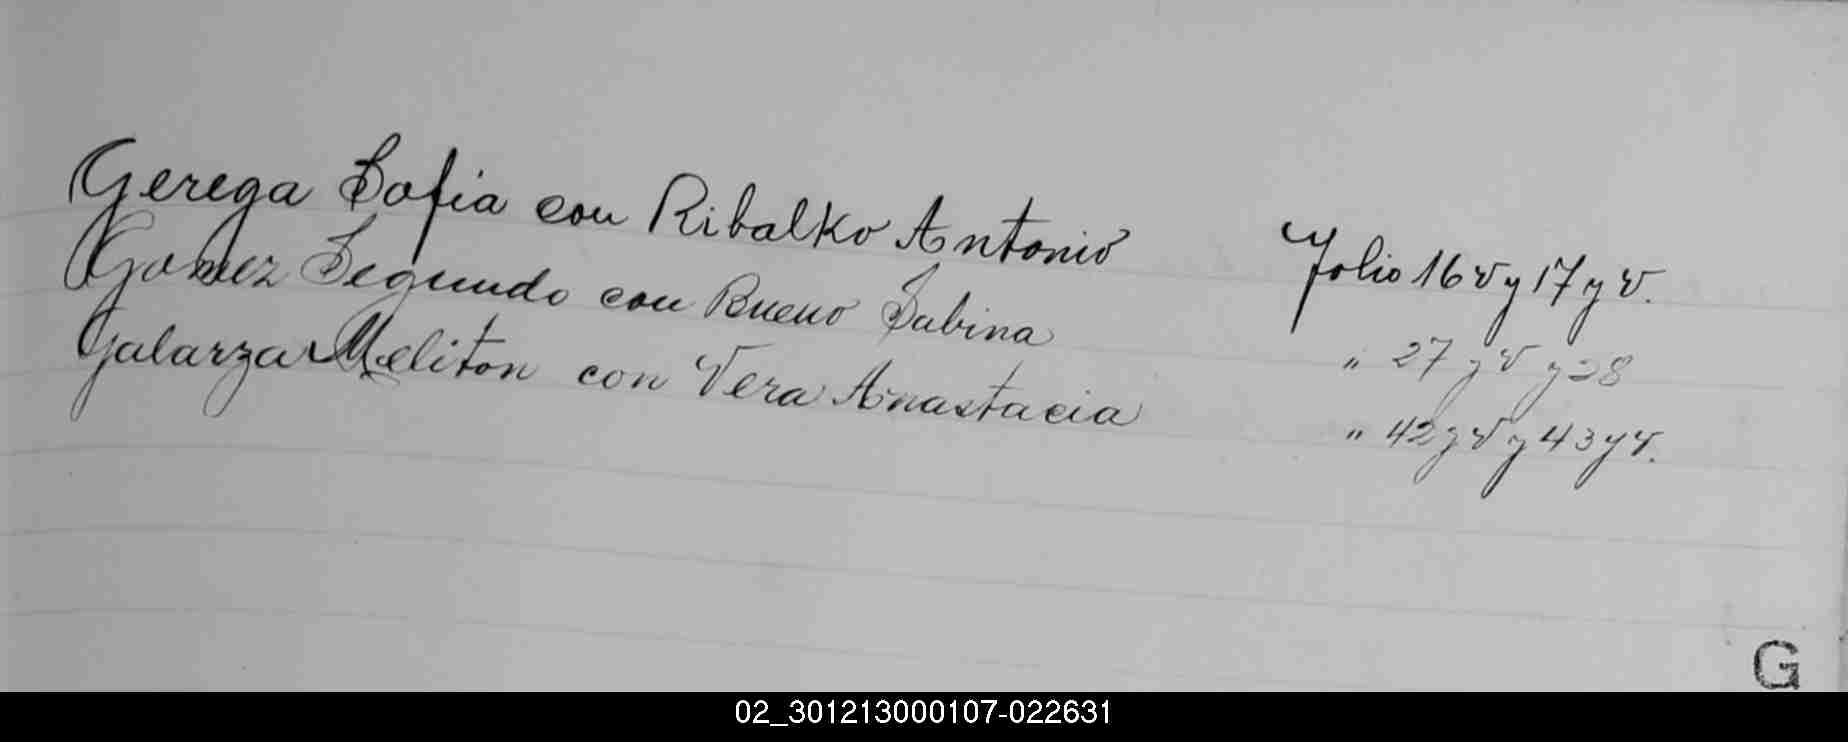 Gerega Sofia con Ribalko Antonio Folio 16 v y 17 y v.
Gomez Segundo con Bueno Sabina " 27 y v y 28
Galarza Meliton con Vera Anastacia " 42 y v y 43 y v.
G
02_301213000107-022631